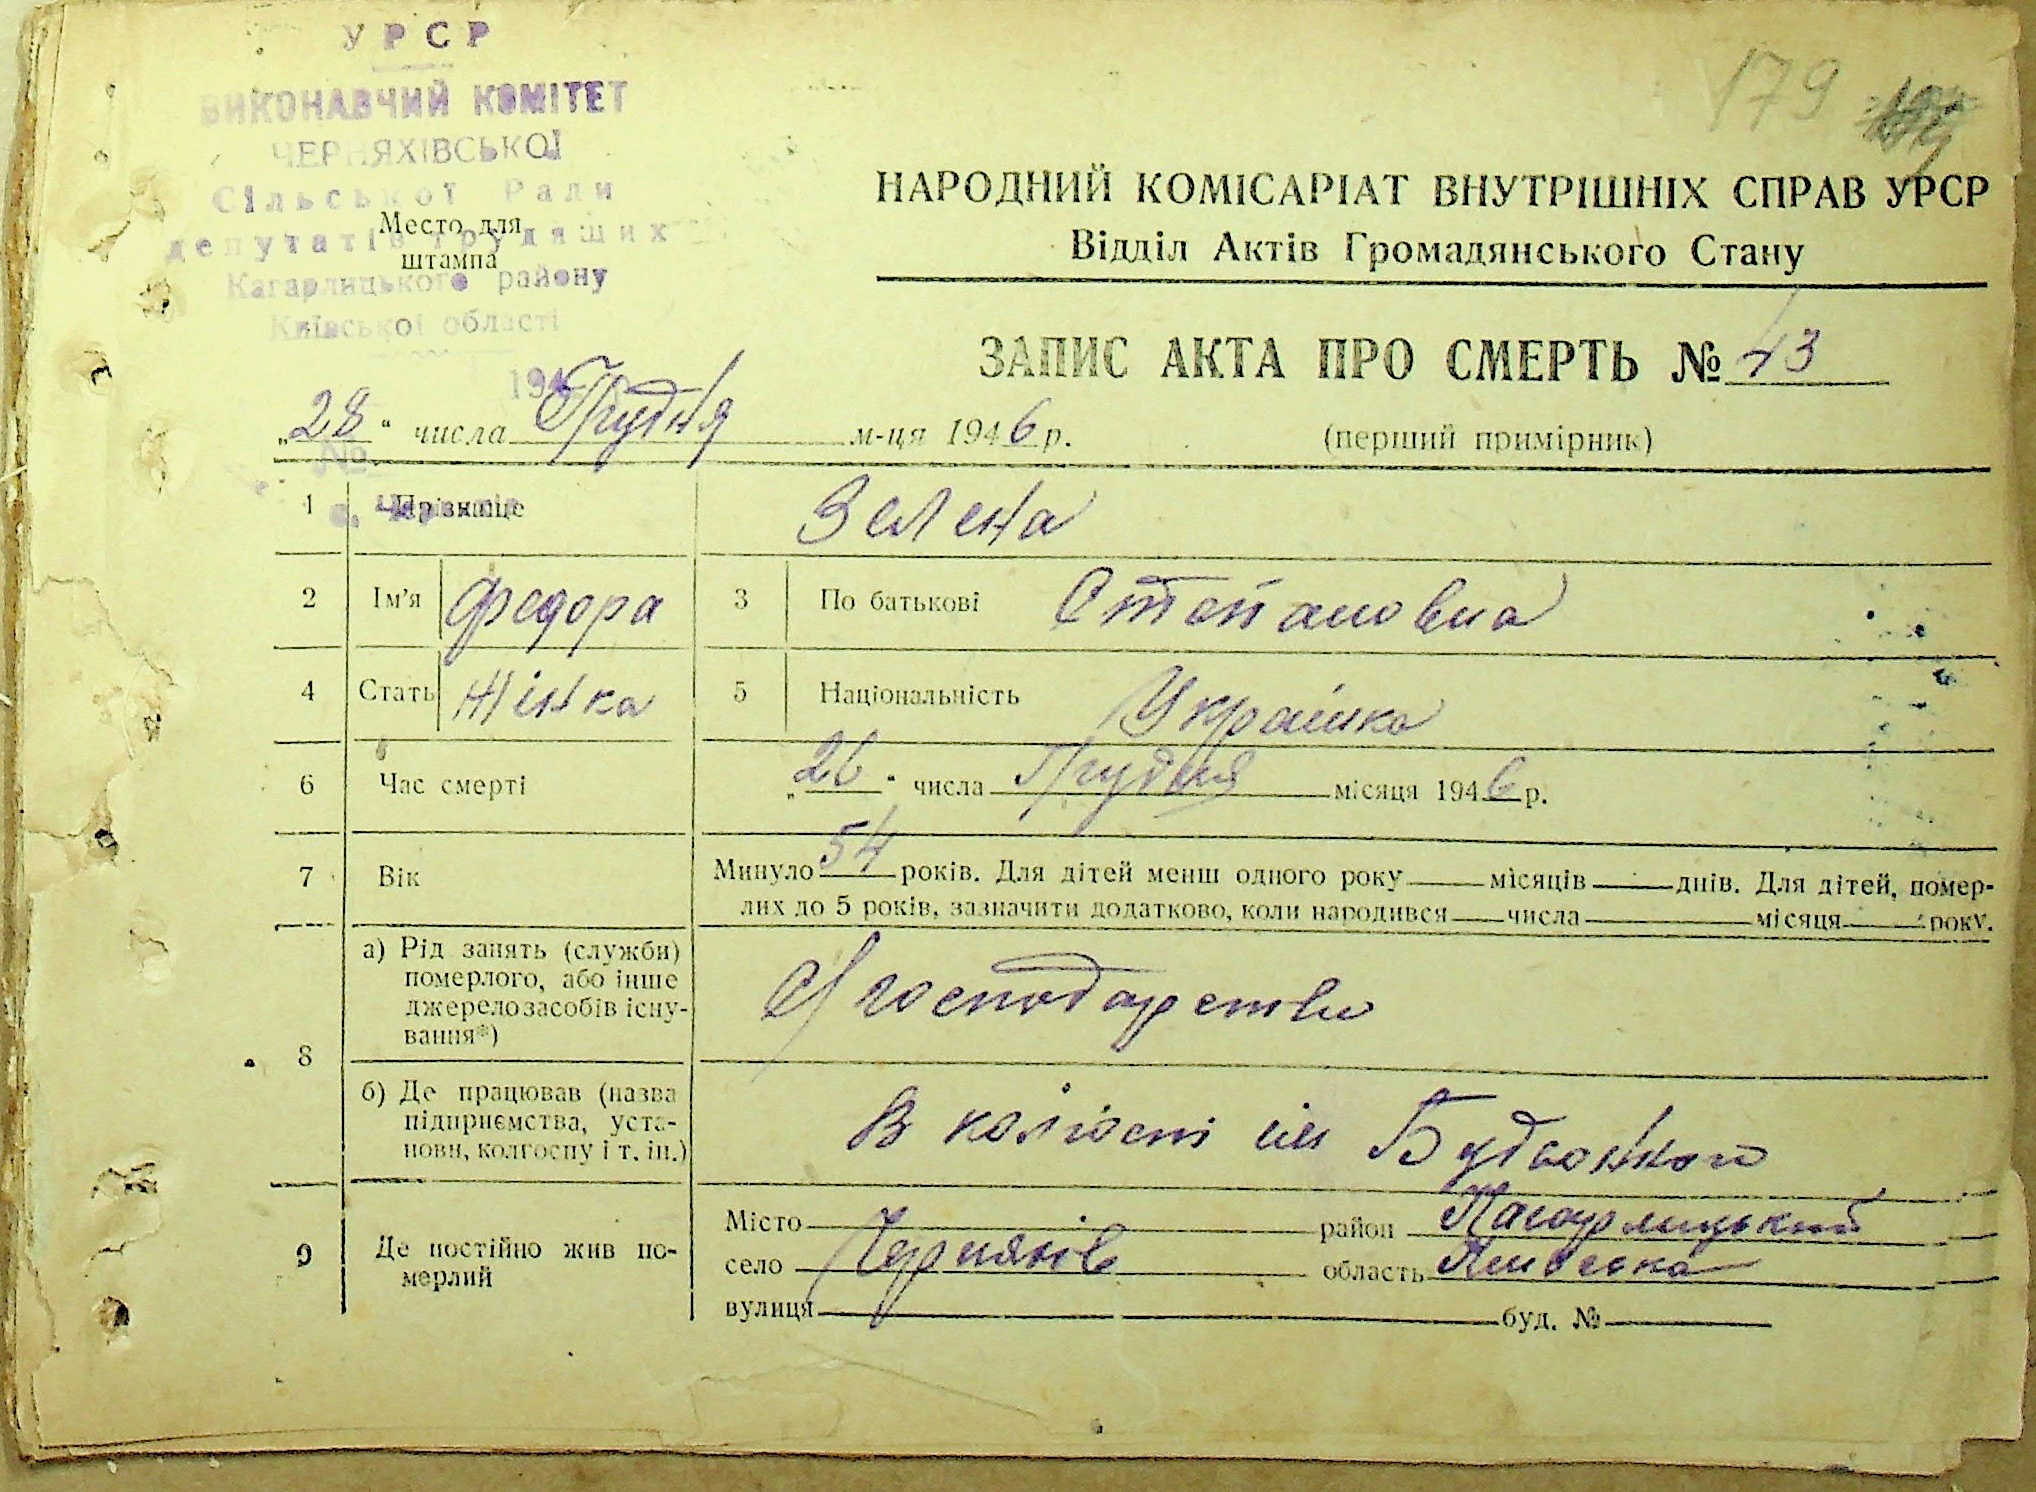 УРСР
ВИКОНАВЧИЙ КОМІТЕТ
ЧЕРНЯХІВСЬКОЇ
Сільської Ради
депутатів трудящих
Кагарлицького району
Київської області
194
№
Место для
штампа
179
НАРОДНИЙ КОМІСАРІАТ ВНУТРІШНІХ СПРАВ УРСР
Відділ Актів Громадянського Стану
ЗАПИС АКТА ПРО СМЕРТЬ № 43
„28“ числа Грудня м-ця 1946 р. (перший примірник)
1 Прізвище Зелена
2 Ім'я Федора 3 По батькові Степановна
4 Стать Жінка 5 Національність Українка
6 Час смерті „26“ числа Грудня місяця 1946 р.
7 Вік Минуло 54 років. Для дітей менш одного року місяців днів. Для дітей, помер-
лих до 5 років, зазначити додатково, коли народився числа місяця року.
8 а) Рід занять (служби)
померлого, або інше
джерело засобів існу-
вання*)
С/господарство
б) Де працював (назва
підприємства, уста-
нови, колгоспу і т. ін.)
В колгоспі ім Будьонного
9 Де постійно жив по-
мерлий
Місто район Кагарлицький
село Черняхів область Київська
вулиця буд. №